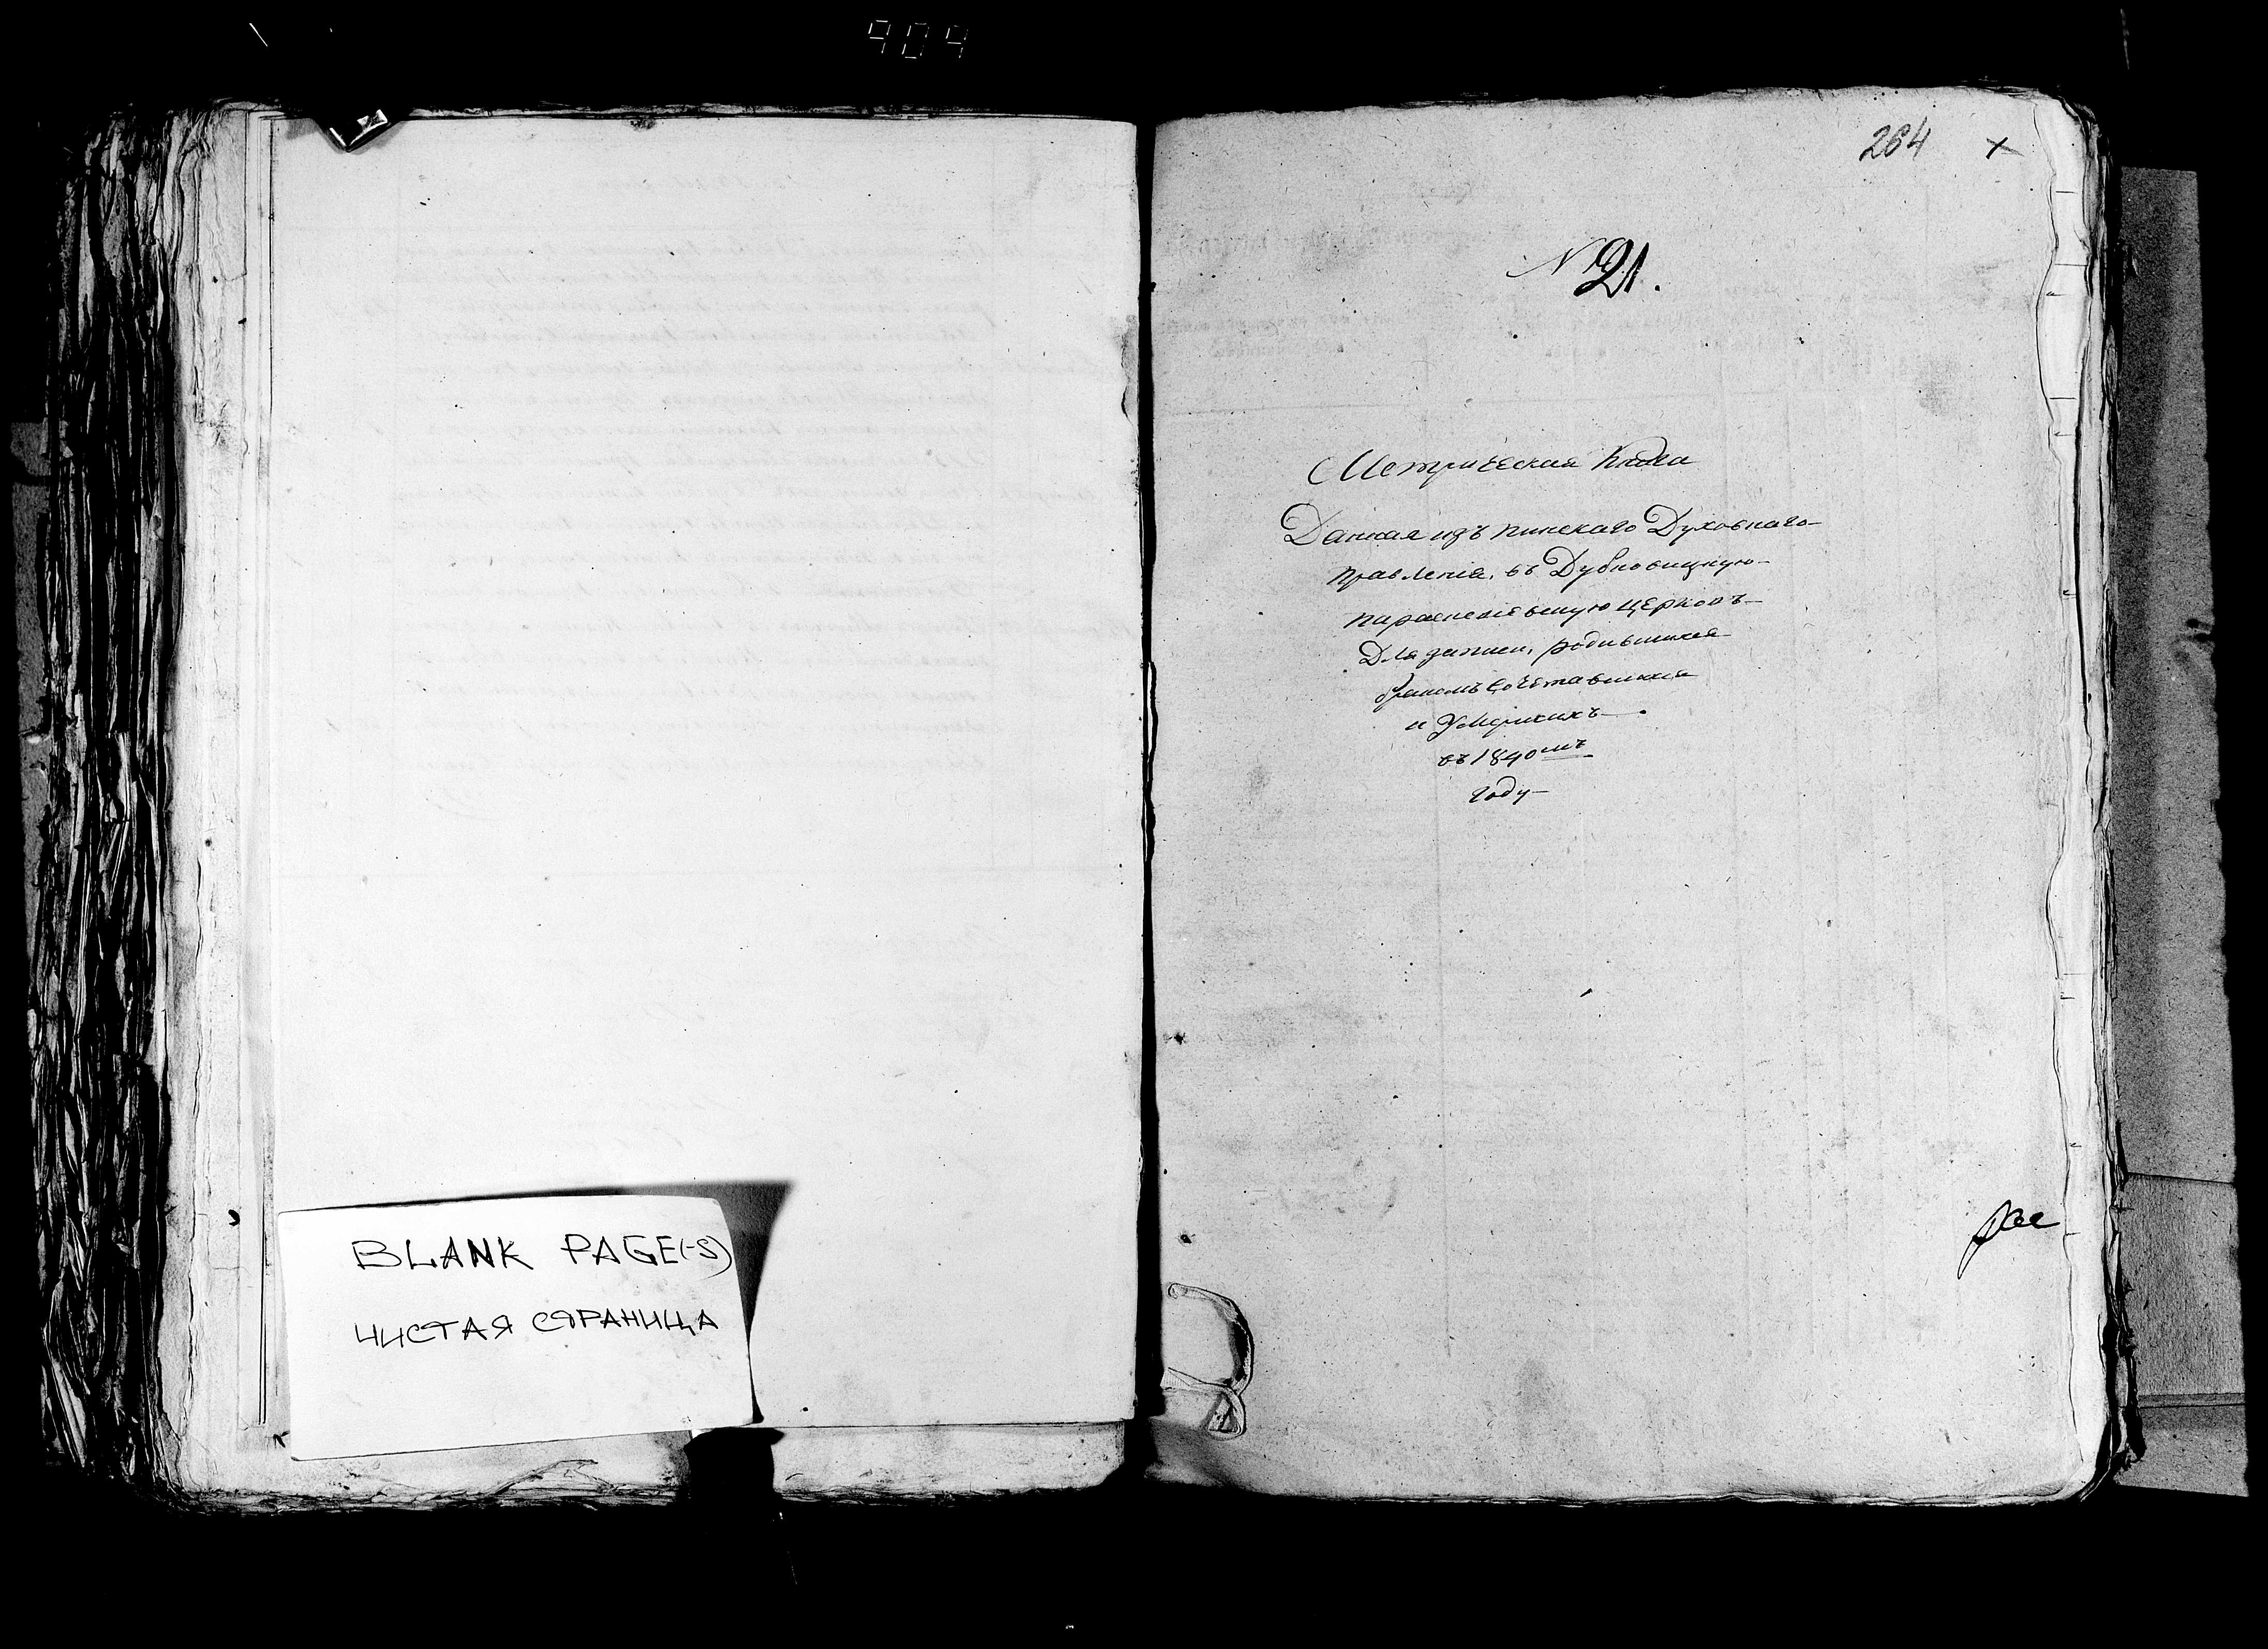 909
BLANK PAGE(-S)
ЧИСТАЯ СТРАНИЦА
264 ×
№ 21.
Метрическая Книга
Данная изъ пинскаго Духовнаго
правленія, въ Дубновицкую
параскевіевскую церковь
Для записи, родившихся
бракомъ сочетавшихся
и Умершихъ.
въ 1840мъ
году